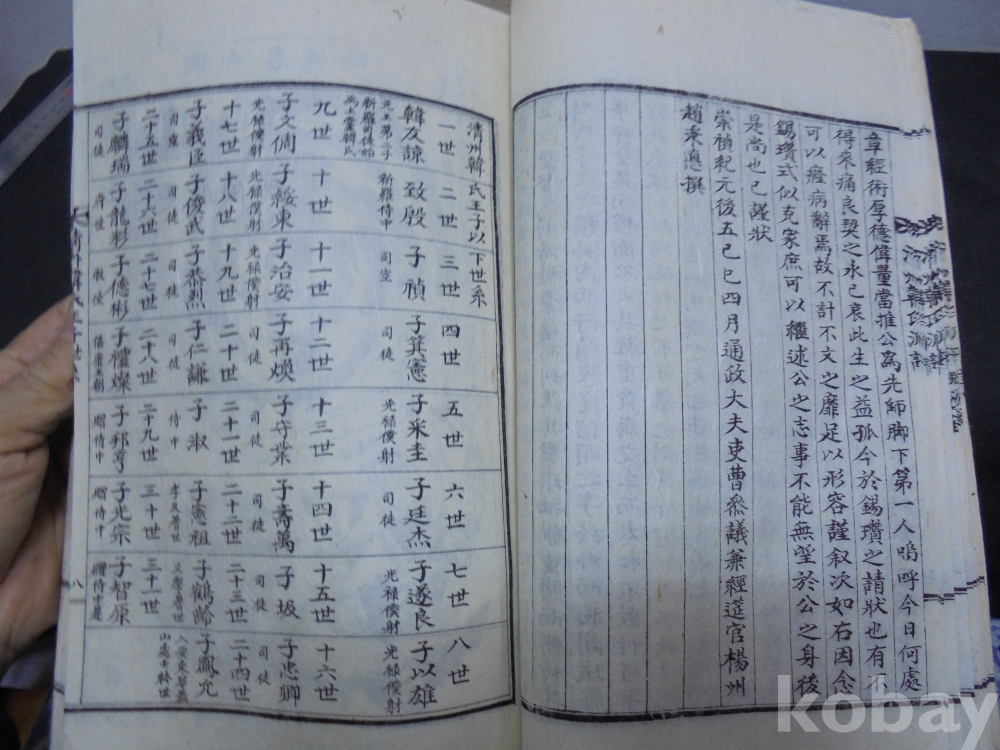 章經術厚德偉量當推公爲先師脚下第一人嗚呼今日何處
得來痛良契之永已哀此生之益孤今於錫瓚之請狀也有不
可以癃病辭焉故不計不文之靡足以形容謹叙次如右因念
錫瓚式似克家庶可以繼述公之志事不能無望於公之身後
是尚也已謹狀
崇禎紀元後五己巳四月通政大夫吏曹叅議兼經筵官楊州
趙秉悳撰
淸州韓氏王子以下世系
一世 二世 三世 四世 五世 六世 七世 八世
韓友諒 致殷 子禎 子箕憲 子采圭 子廷杰 子遂良 子以雄
元王弟二子 新羅侍中 司空 司徒 光祿僕射 司徒 光祿僕射 光祿僕射
九世 十世 十一世 十二世 十三世 十四世 十五世 十六世
子文倜 子綏東 子治安 子再煥 子守業 子壽萬 子圾 子忠卿
光祿僕射 光祿僕射 光祿僕射 司徒 司徒 司徒 司徒 司徒
十七世 十八世 十九世 二十世 二十一世 二十二世 二十三世 二十四世
子義臣 子俊武 子恭烈 子仁謙 子淑 子憲祖 子鶴齡 子鳳允
司空 司徒 司徒 司徒 侍中
二十五世 二十六世 二十七世 二十八世 二十九世 三十世 三十一世
子麟瑞 子龍彩 子億彬 子禮燦 子邦亨 子光宗 子智原
司徒 府使 牧使 贈侍中 贈侍中
八
kobay